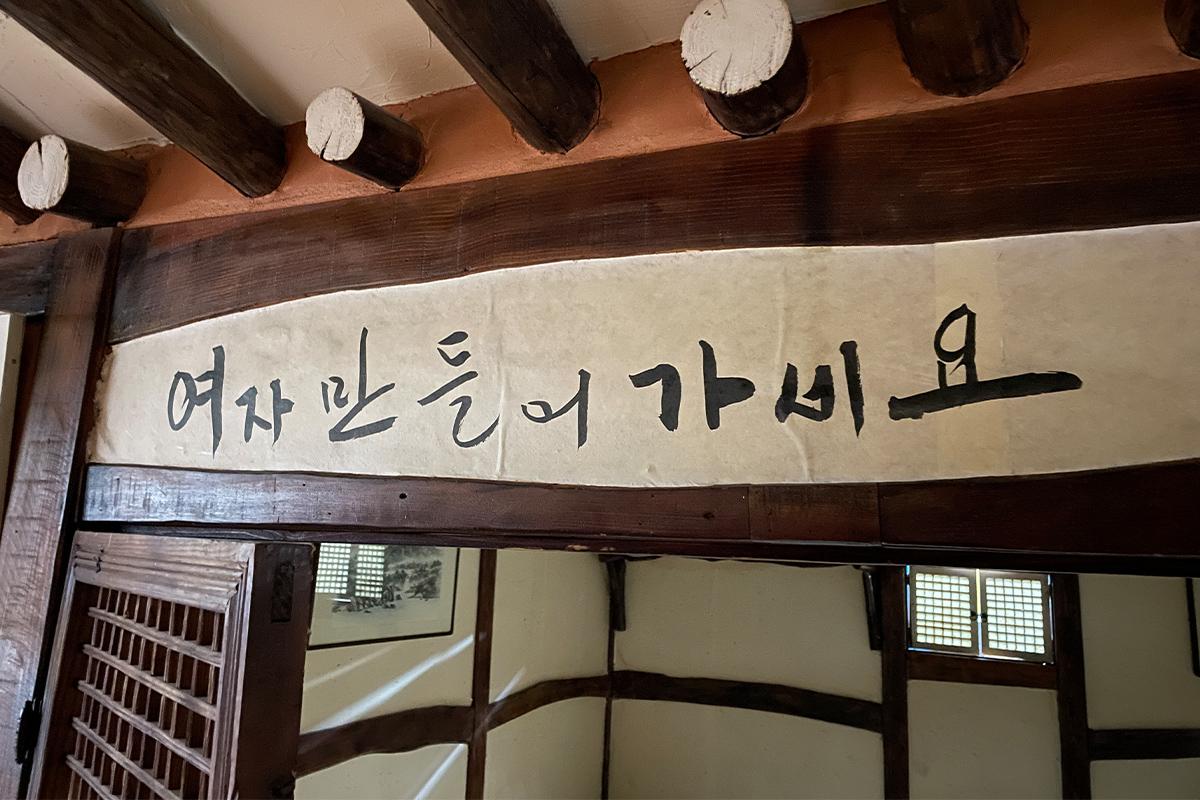 여자 만 들어 가세요